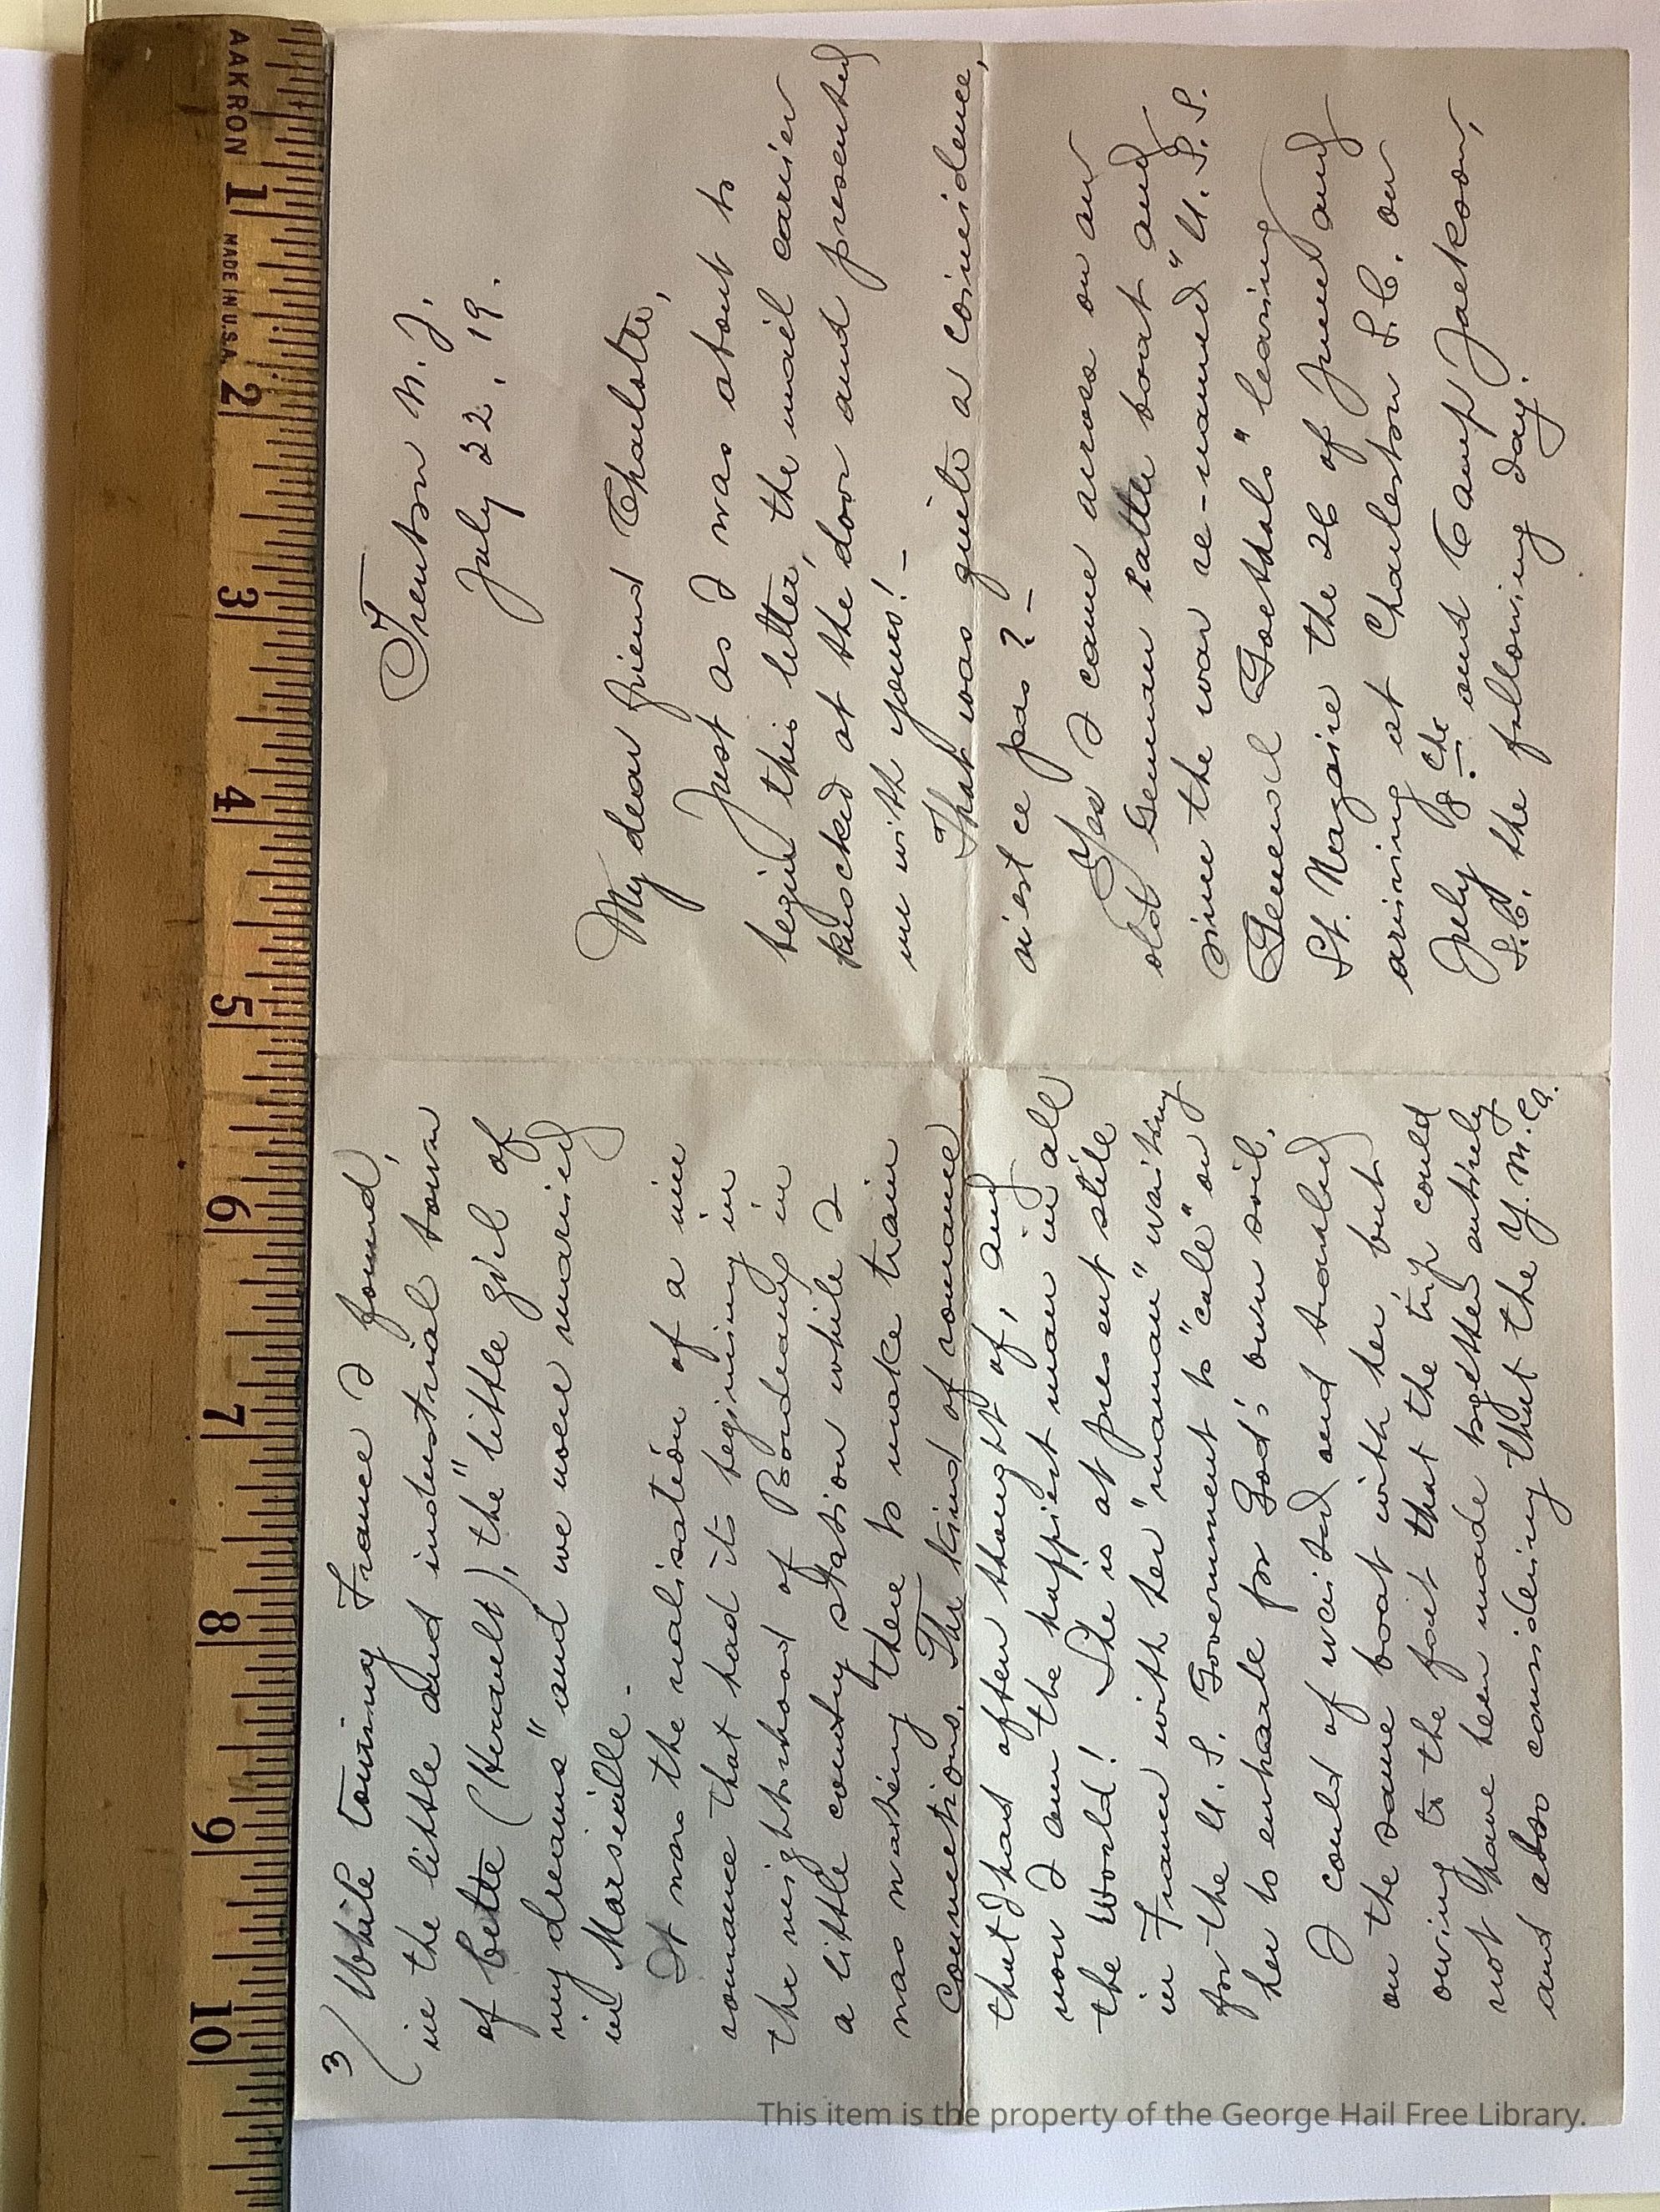 Trenton N. J.
July 22, 19.
My dear friend Charlotte,
Just as I was about to
begin this letter, the mail carrier
knocked at the door and presented
me with yours! -
That was quite a coincidence,
n'est ce pas? -
Yes I came across on an
old German cattle boat and
since the war re-named "U. S. S.
General Goethals" leaving
St. Nazaire the 26 of June and
arriving at Charleston S.C. on
July 8th and Camp Jackson,
S.C. the following day.
3/ While touring France I found,
in the little and industrial town
of Cette (Herault), the "little girl of
my dreams" and we were married
in Marseille.
It was the realisation of a
romance that had its beginning in
the neighborhood of Bordeaux in
a little country station while I
was waiting there to make train
connections. The kind of romance
that I had often thought of, and
now I am the happiest man in all
the World! She is at present still
in France with her "maman" waiting
for the U. S. Government to "call" on
her to embark for God's own soil.
I could of waited and traveled
on the same boat with her, but
owing to the fact that the trip could
not have been made together entirely
and also considering that the Y.M.C.A.
AAKRON
MADE IN U.S.A.
1 2 3 4 5 6 7 8 9 10
This item is the property of the George Hail Free Library.